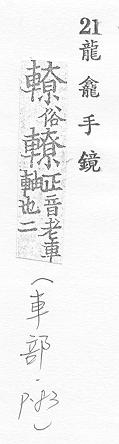 21龍龕手鏡
轑俗轑正音老車
軸也二
(車部·p.83)